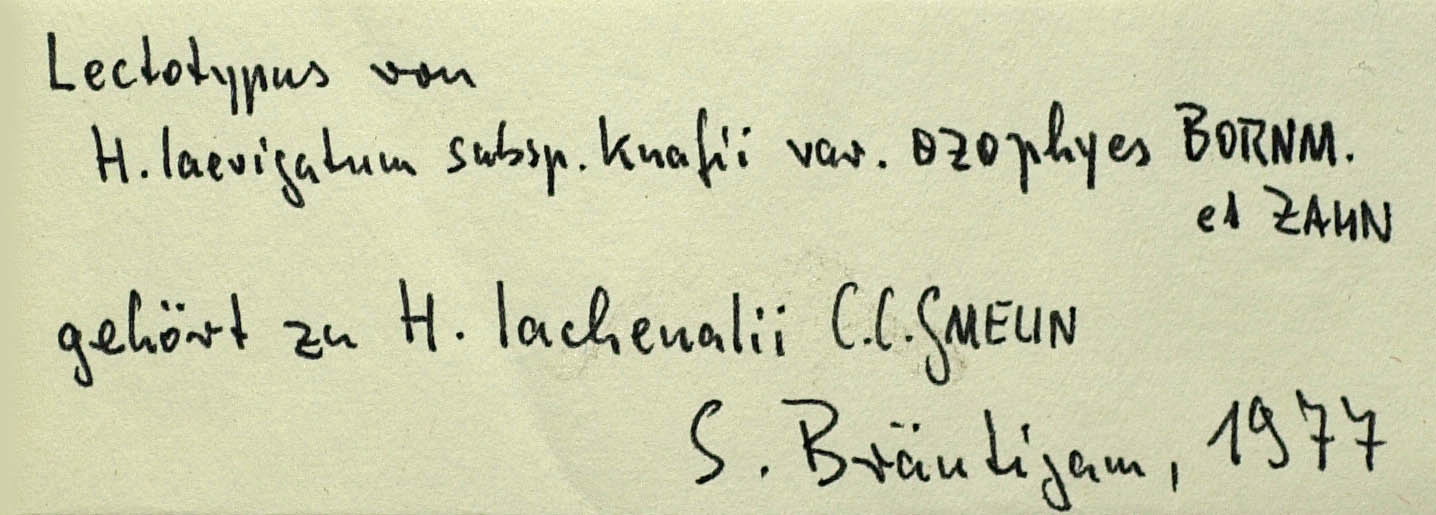 Lectotypus von
H. laevigatum subsp. knafii var. ozophyes BORNM.
et ZAHN
gehört zu H. lachenalii C.C. GMELIN
S. Bräutigam, 1977